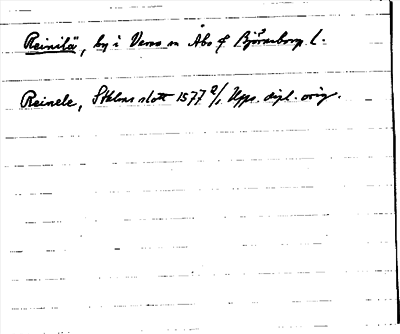 Reinilä, by i Vemo sn Åbo o Björneborg l.
Reinele, Sthlms slott 1577 2/1 Upps. dipl. orig.